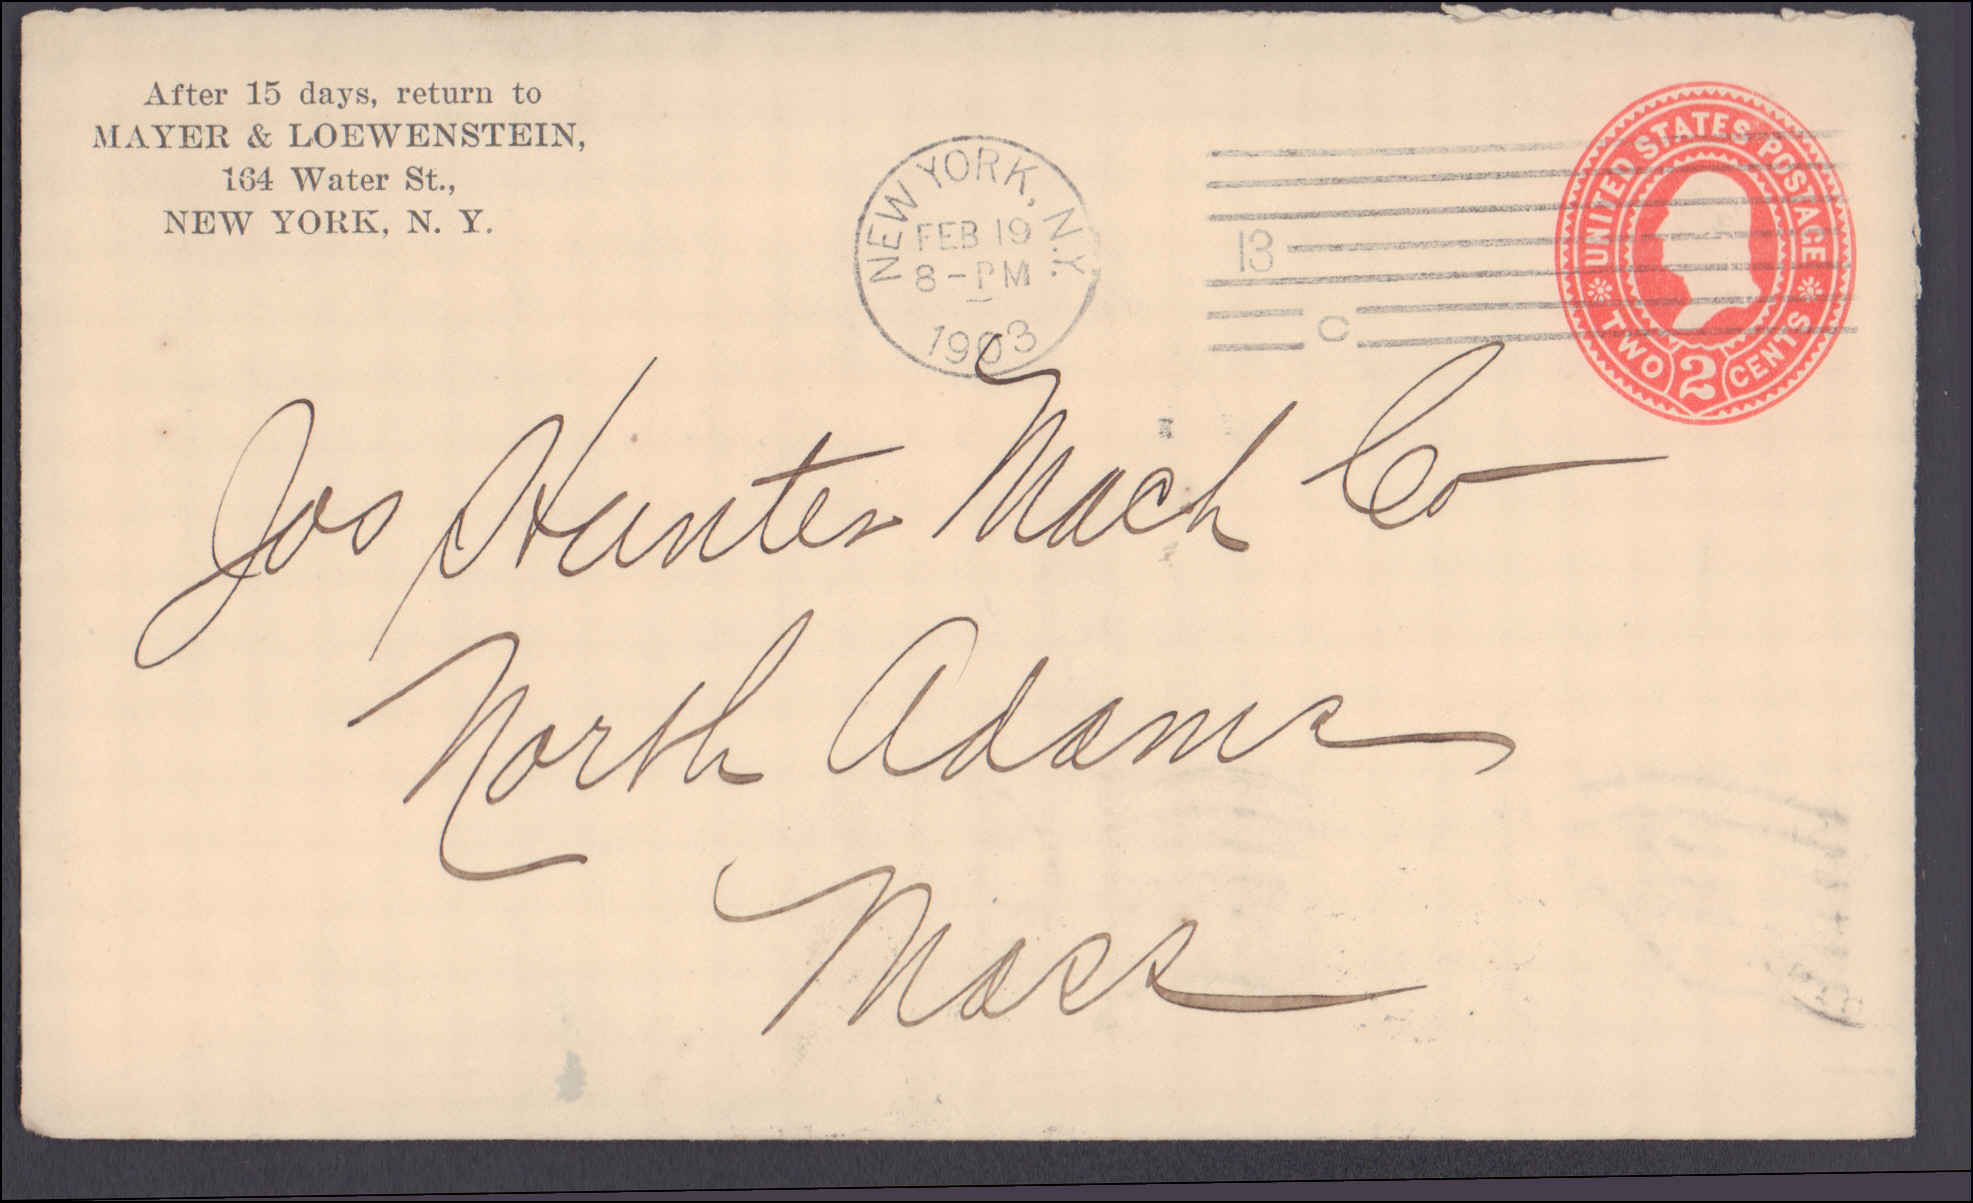 After 15 days, return to
MAYER & LOEWENSTEIN,
164 Water St.,
NEW YORK, N. Y.
NEW YORK, N.Y.
FEB 19
8-PM
1903
13
C
UNITED STATES POSTAGE
TWO 2 CENTS
Jos Hunter Mach Co
North Adams
Mass